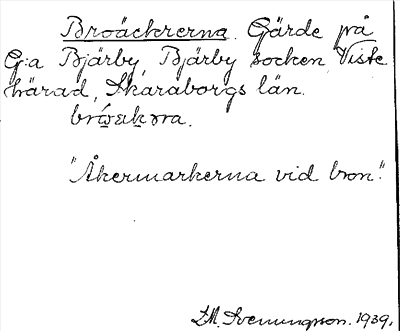 Broäckrerna. Gärde på
G:a Bjärby, Bjärby socken Viste
härad, Skaraborgs län.

"Åkermarkerna vid bron."
Svenungson. 1939.